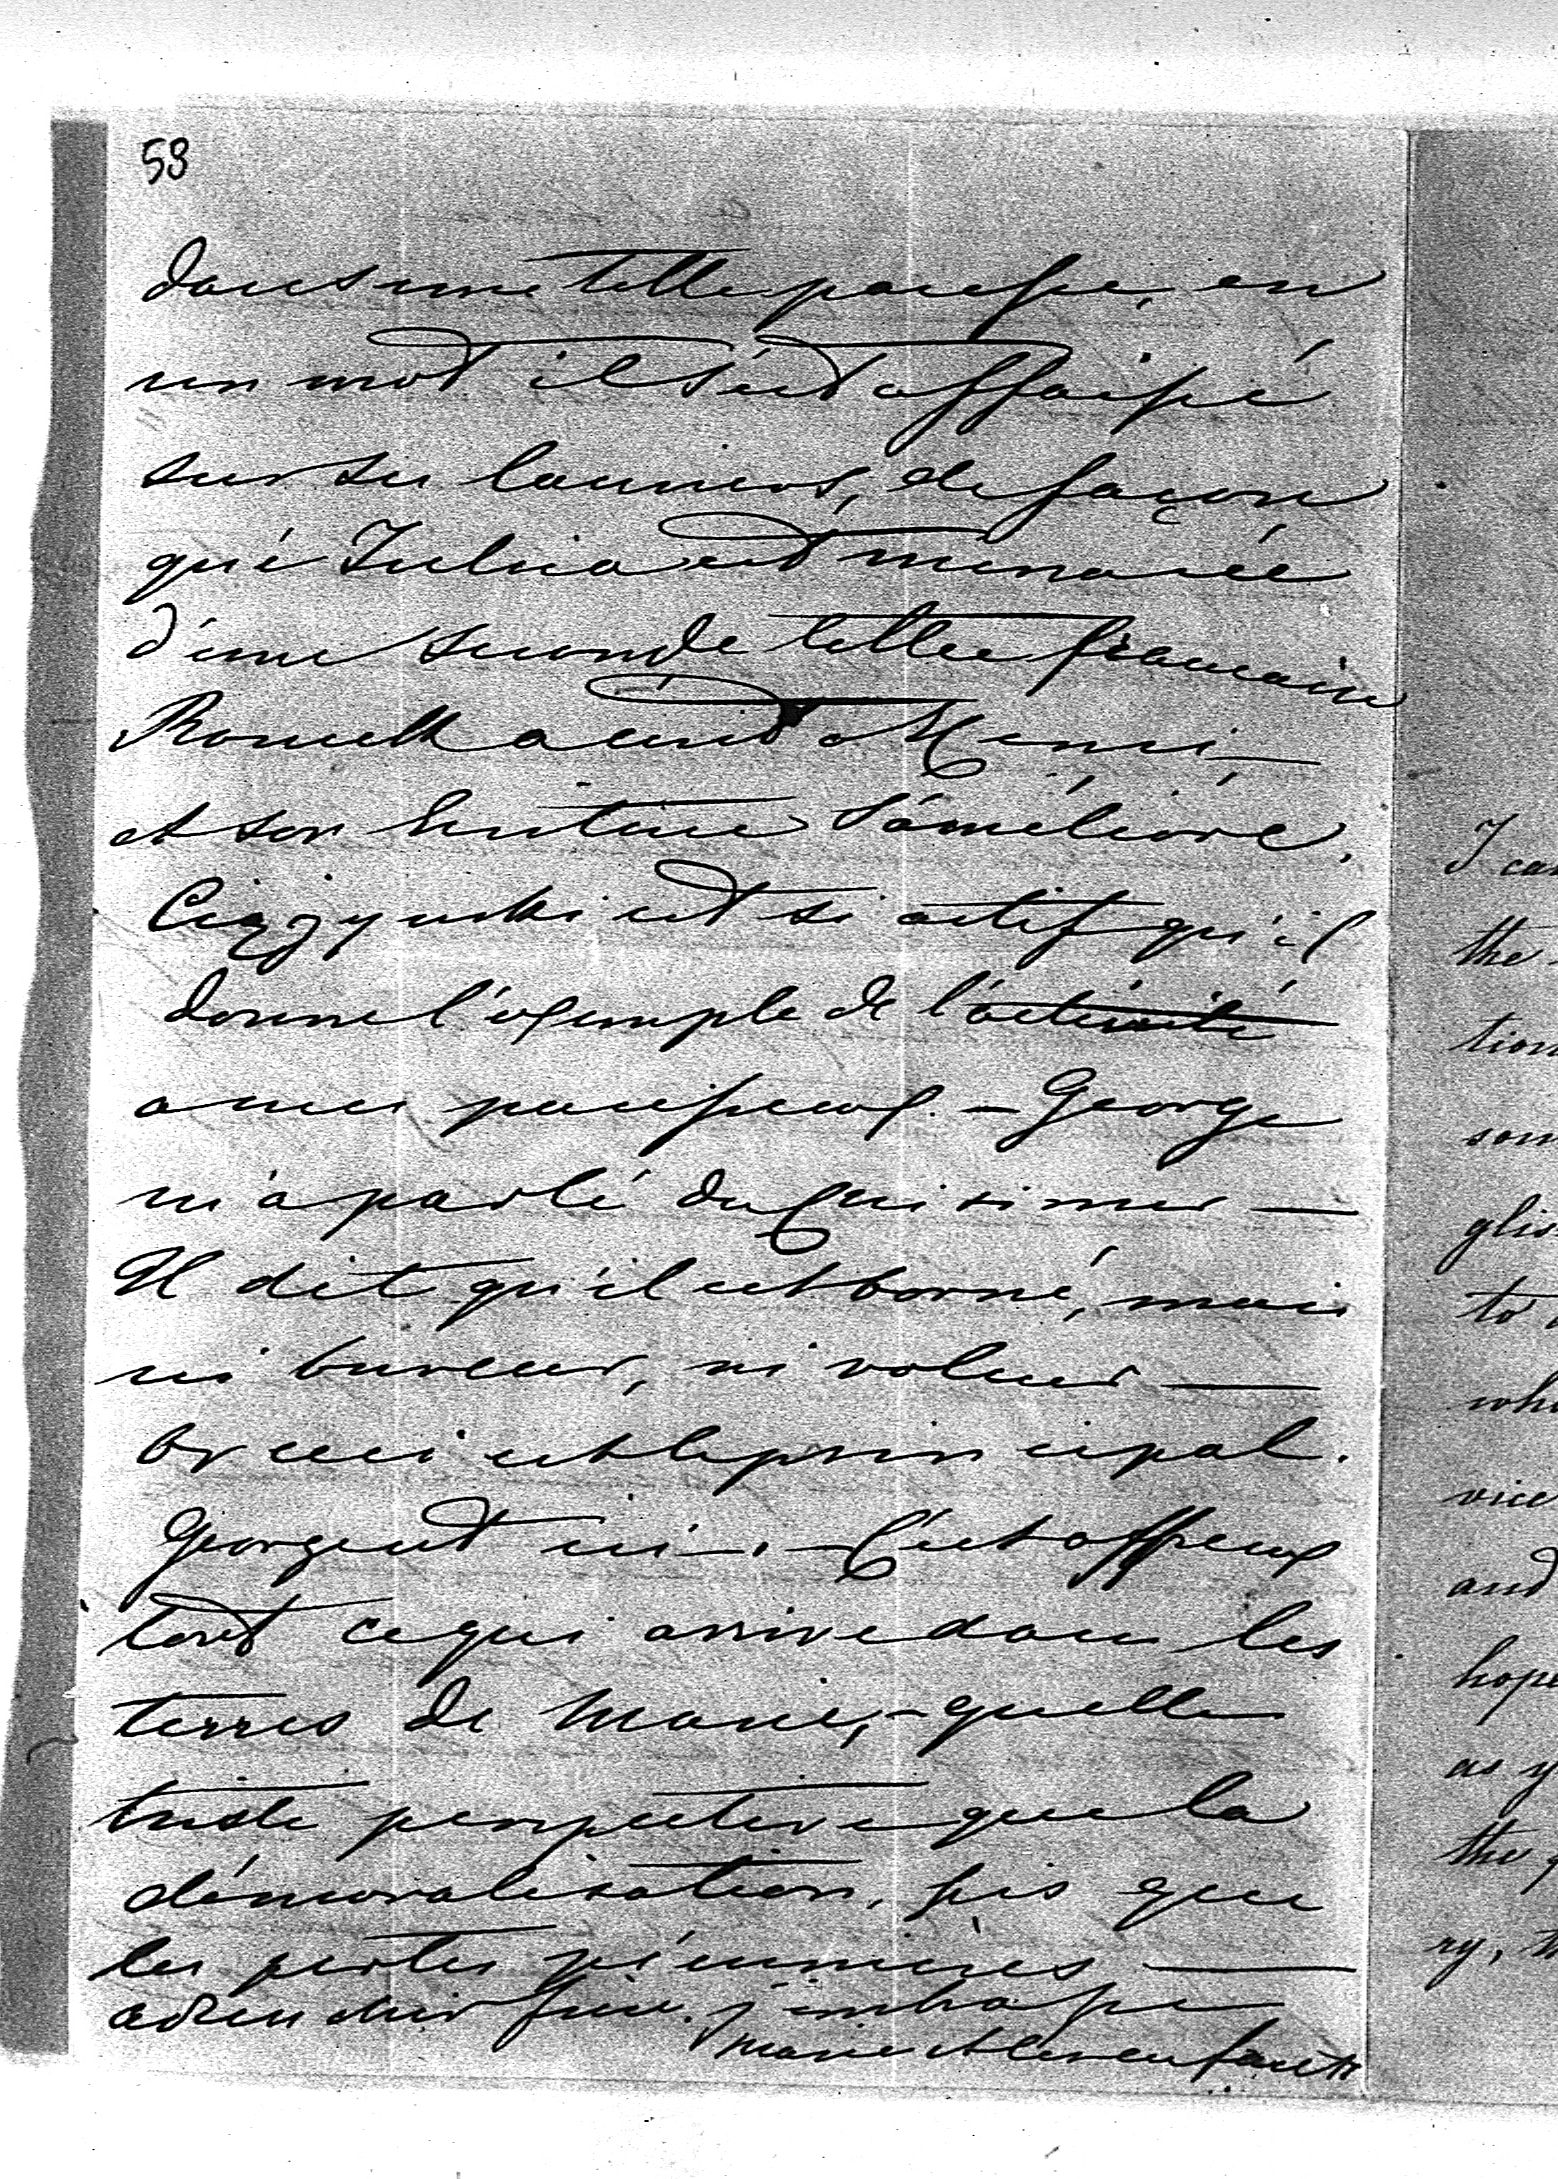 58
dans une telle paresse, en
un mot il s'est affaissé
sur ses lauriers, de façon
que Julia est menacée
d'une seconde lettre française
Romuald a écrit à Henri —
et son écriture s'améliore.
est si actif qu'il
donne l'exemple de l'activité
à mes paresseux. — George
m'a parlé du Cuisinier —
Il dit qu'il est borné, mais
ni buveur, ni voleur —
or ceci est le principal.
George est ici — C'est affreux
tout ce qui arrive dans les
terres de Marie, — quelle
triste perspective que la
démoralisation, pis que
les pertes pécunières —
adieu cher frère. j'embrasse
Marie et les enfants
I can
the
tion
som
glis
to
who
vice
and
hope
as y
the
ry, th